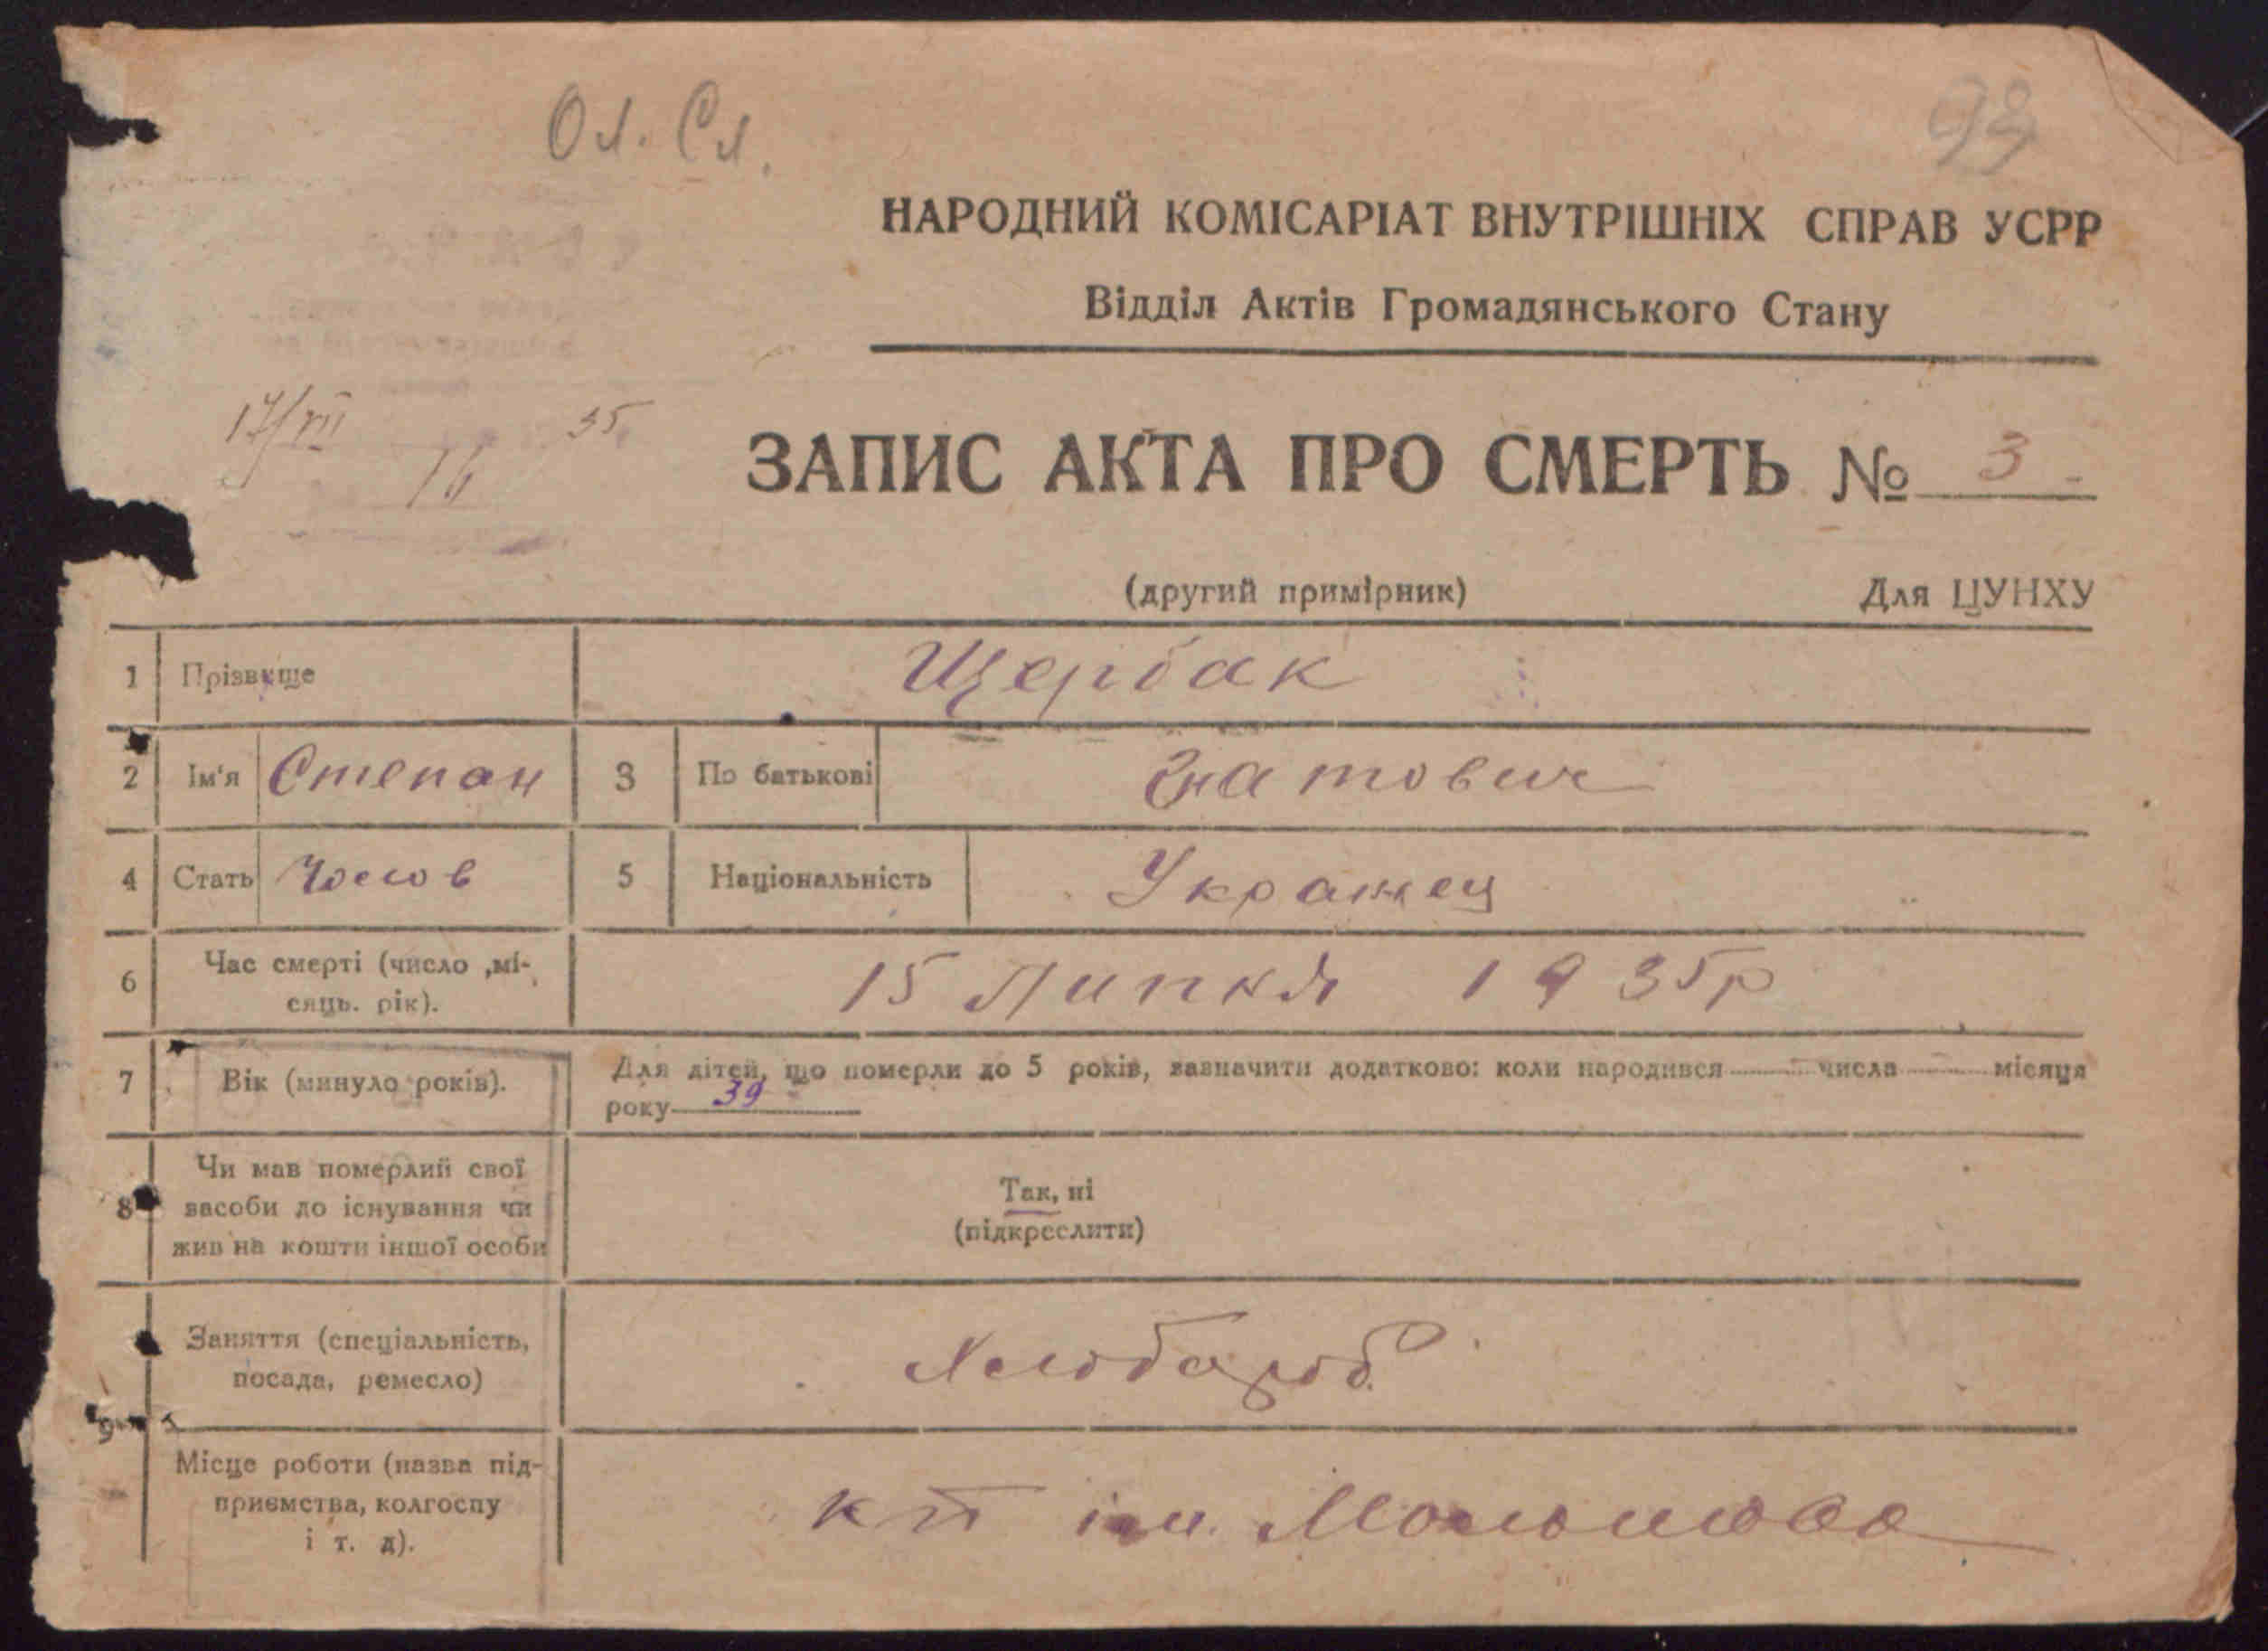 Ол. Сл.
93
НАРОДНИЙ КОМІСАРІАТ ВНУТРІШНІХ СПРАВ УСРР
Відділ Актів Громадянського Стану
17/VII 35
16
ЗАПИС АКТА ПРО СМЕРТЬ № 3
(другий примірник) Для ЦУНХУ
1 Прізвище Щербак
2 Ім'я Степан 3 По батькові Гнатович
4 Стать Чолов 5 Національність Украинец
6 Час смерті (число ,мі-
сяць. рік). 15 Липня 1935р
7 Вік (минуло років). Для дітей, що померли до 5 років, зазначити додатково: коли народився числа місяця
року 39
8 Чи мав померлий свої
засоби до існування чи
жив на кошти іншої особи
Так, ні
(підкреслити)
Заняття (спеціальність,
посада, ремесло) Хлібороб
9
Місце роботи (назва під-
приємства, колгоспу
і т. д).
ім.